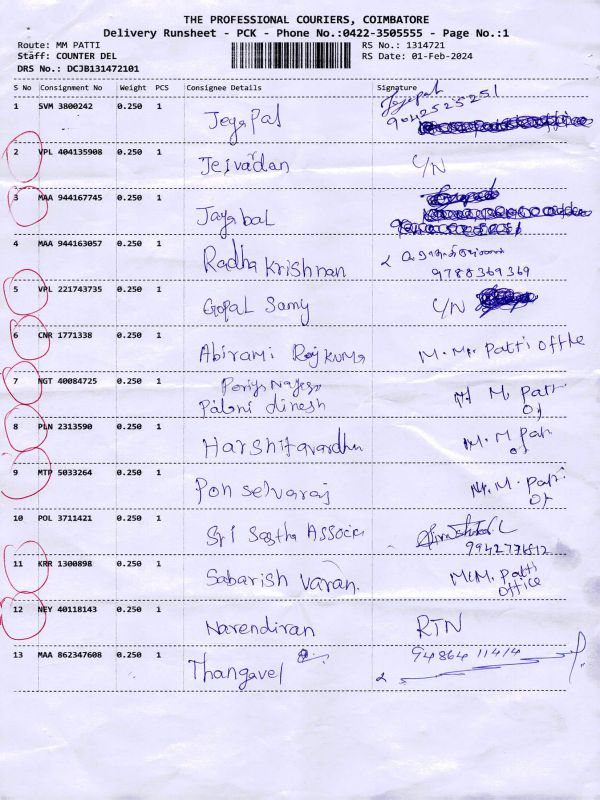 THE PROFESSIONAL COURIERS, COIMBATORE
Delivery Runsheet - PCK - Phone No.:0422-3505555 - Page No.:1
Route: MM PATTI
RS No.: 1314721
Staff: COUNTER DEL
RS Date: 01-Feb-2024
DRS No.: DCJB131472101
S No Consignment No Weight PCS Consignee Details Signature
1 SVM 3800242 0.250 1 Jeyapal
9042525251
2 VPL 404135908 0.250 1 Jeivardan C/N
3 MAA 944167745 0.250 1 Jayabal
4 MAA 944163057 0.250 1 Radha Krishnan
9788369369
5 VPL 221743735 0.250 1 Gopal Samy C/N
6 CNR 1771338 0.250 1 Abirami Rajkuma M.M. Patti Office
7 NGT 40084725 0.250 1 Palani dinesh M. Patti
Of
8 PLN 2313590 0.250 1 Harshitavardhn M.M Patti
Of
9 MTP 5033264 0.250 1 Pon selvaraj M.M. Patti
Of
10 POL 3711421 0.250 1 Sri Sastha Associ
11 KRR 1300898 0.250 1 Sabarish varan. M.M. Patti
Office
12 NEY 40118143 0.250 1 Narendiran RTN
13 MAA 862347608 0.250 1 Thangavel 94864 11414